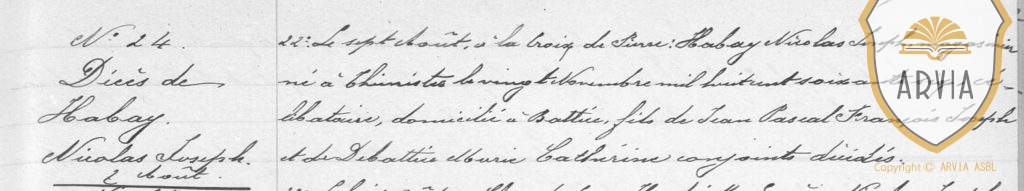 N° 24.
Décès de
Habay.
Nicolas Joseph.
2 Août.
22° Le sept Août, à la Croix de Pierre: Habay Nicolas Joseph
né à Thimister le vingt Novembre mil huit cent soixante
libataire, domicilié à Battice, fils de Jean Pascal François Joseph
et de Debattice Marie Catherine conjoints décédés.
ARVIA
Copyright © ARVIA ASBL